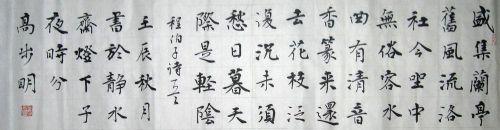 盛集蘭亭
舊風流洛
社今坐中
無俗客水
曲有清音
香篆來還
去花枝泛
復沉未須
愁日暮天
際是輕陰
程伯子詩
壬辰秋月
書於靜水
齋燈下子
夜時分
高步明